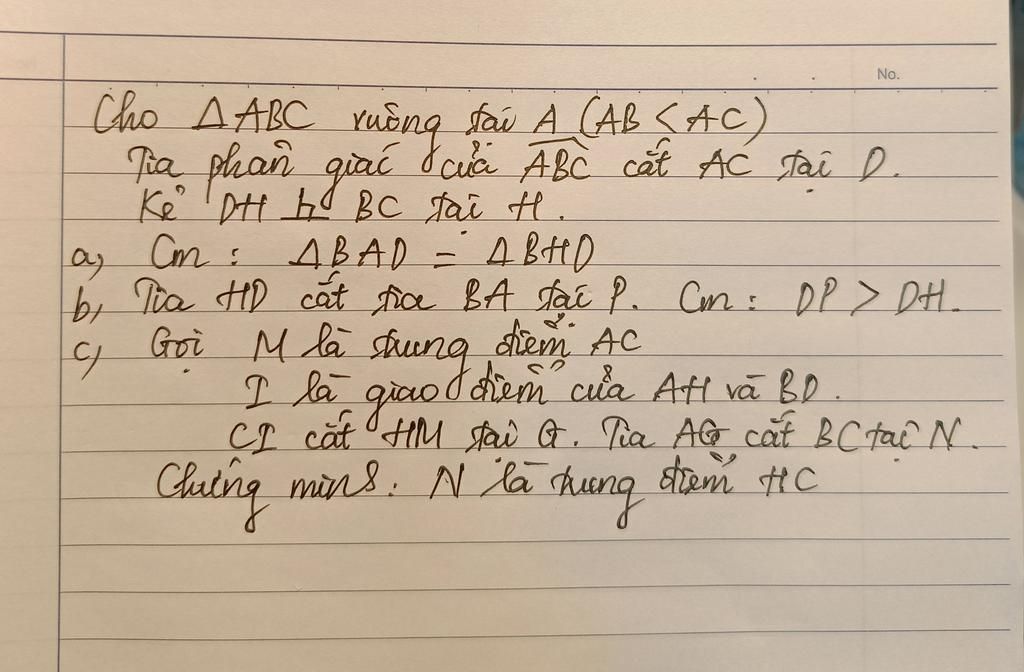 No.
Cho ΔABC vuông tại A (AB < AC)
Tia phân giác của ABC cắt AC tại D.
Kẻ DH ⊥ BC tại H.
a, Cm : ΔBAD = ΔBHD
b, Tia HD cắt tia BA tại P. Cm : DP > DH.
c, Gọi M là trung điểm AC
I là giao điểm của AH và BD.
CI cắt HM tại G. Tia AG cắt BC tại N.
Chứng minh : N là trung điểm HC